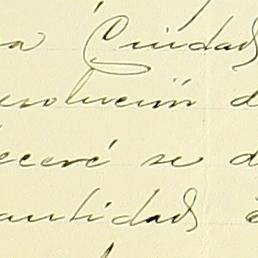 a Ciudad
esolución d
eceré se d
antidad